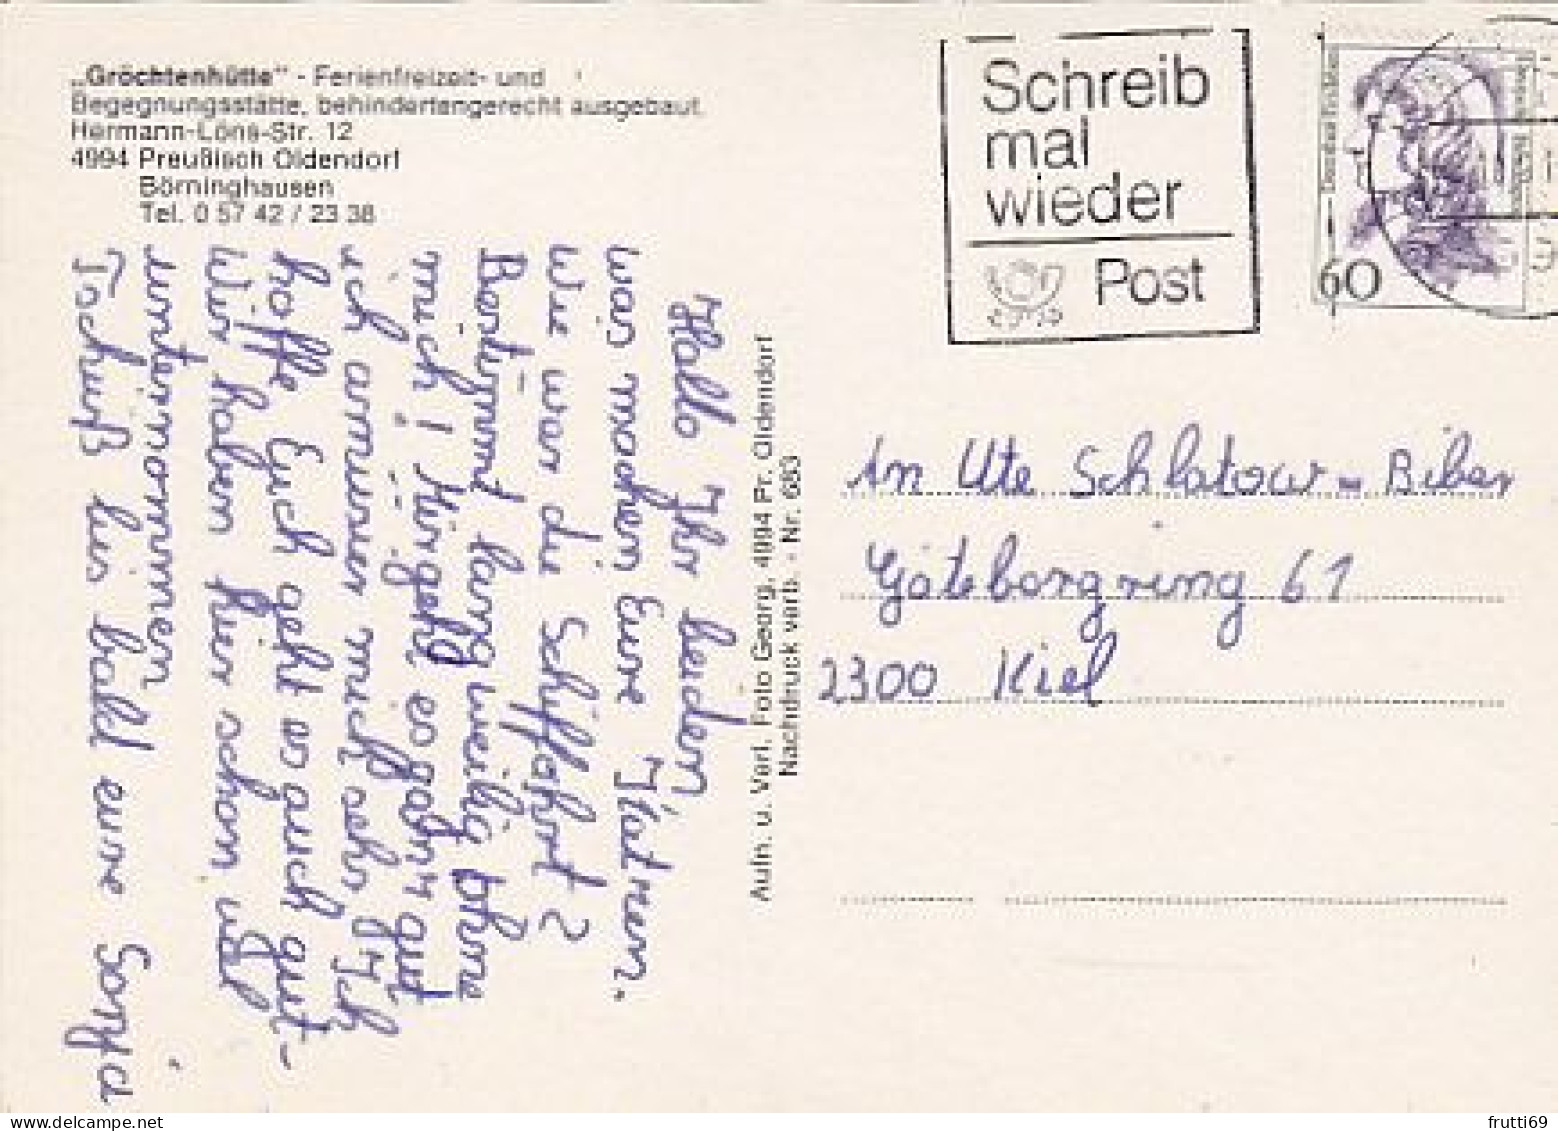 „Gröchtenhütte" - Ferienfreizeit- und
Begegnungsstätte, behindertengerecht ausgebaut.
Hermann-Löns-Str. 12
4994 Preußisch Oldendorf
Börninghausen
Tel. 0 57 42 / 23 38
Schreib
mal
wieder
Post
60
Hallo Ihr beiden
was machen Eure Katzen.
Wie war die Schiffahrt?
Bestimmt langweilig ohne
mich! Mir geht es ganz gut
ich amüsier mich sehr. Ich
hoffe Euch geht es auch gut-
Wir haben hier schon viel
unternommen
Tschüß bis bald eure Sonja
Aufn. u. Verl. Foto Georg, 4994 Pr. Oldendorf
Nachdruck verb. - Nr. 683
An Ute Schlatow-Biber
Göteborgring 61
2300 Kiel
frutti69